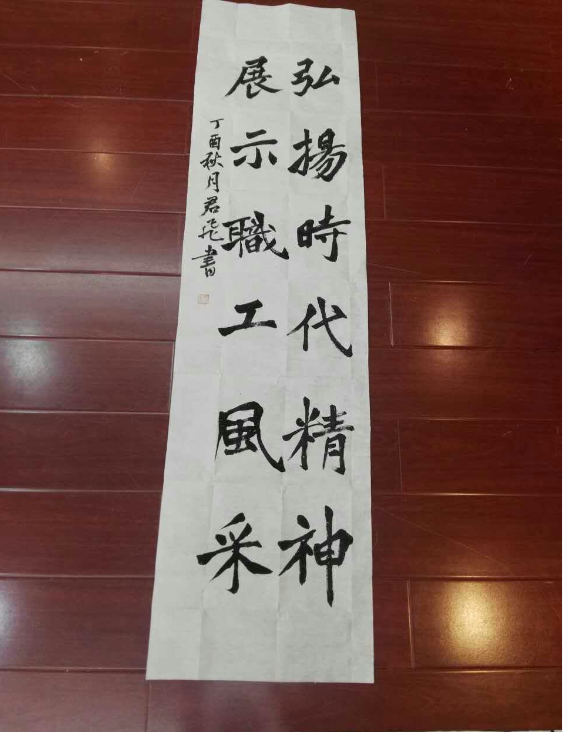 弘揚時代精神
展示職工風采
丁酉秋月君飛書